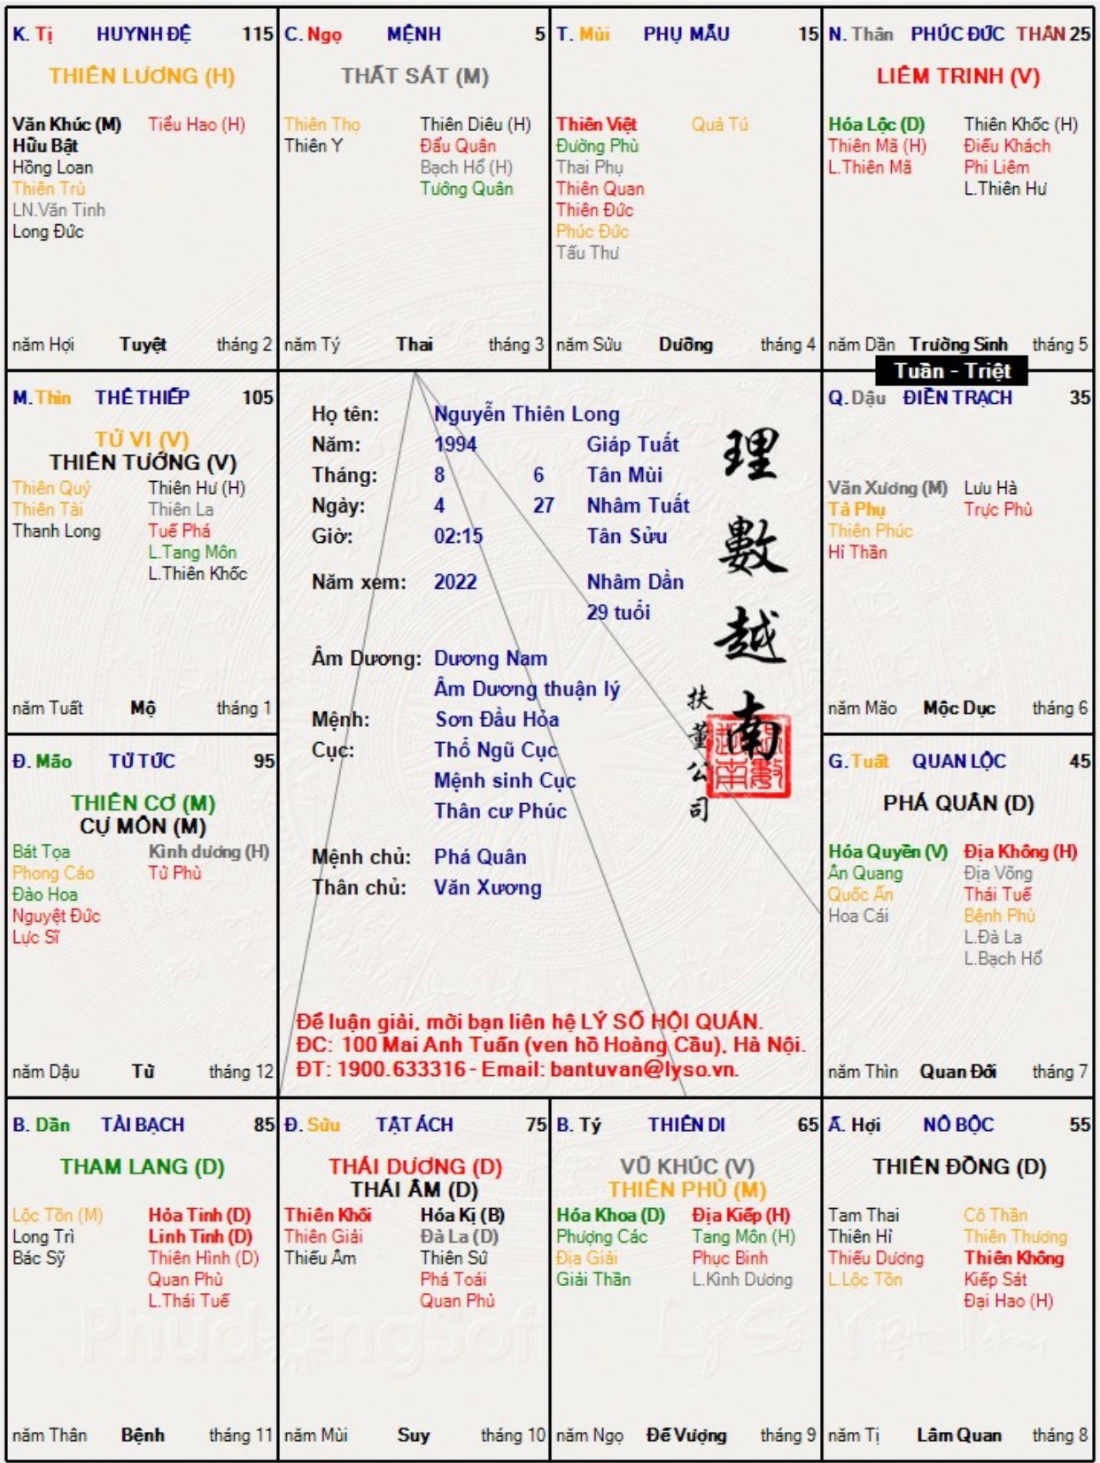 K. Tị HUYNH ĐỆ 115
THIÊN LƯƠNG (H)
Văn Khúc (M) Tiểu Hao (H)
Hữu Bật
Hồng Loan
Thiên Trù
LN.Văn Tinh
Long Đức
năm Hợi Tuyệt tháng 2
C. Ngọ MỆNH 5
THẤT SÁT (M)
Thiên Thọ Thiên Diêu (H)
Thiên Y Đẩu Quân
Bạch Hổ (H)
Tướng Quân
năm Tý Thai tháng 3
T. Mùi PHỤ MẪU 15
Thiên Việt Quả Tú
Đường Phù
Thai Phụ
Thiên Quan
Thiên Đức
Phúc Đức
Tấu Thư
năm Sửu Dưỡng tháng 4
N. Thân PHÚC ĐỨC THÂN 25
LIÊM TRINH (V)
Hóa Lộc (D) Thiên Khốc (H)
Thiên Mã (H) Điếu Khách
L.Thiên Mã Phi Liêm
L.Thiên Hư
năm Dần Trường Sinh tháng 5
Tuần - Triệt
M. Thìn THÊ THIẾP 105
TỬ VI (V)
THIÊN TƯỚNG (V)
Thiên Quý Thiên Hư (H)
Thiên Tài Thiên La
Thanh Long Tuế Phá
L.Tang Môn
L.Thiên Khốc
năm Tuất Mộ tháng 1
Họ tên: Nguyễn Thiên Long
Năm: 1994 Giáp Tuất
Tháng: 8 6 Tân Mùi
Ngày: 4 27 Nhâm Tuất
Giờ: 02:15 Tân Sửu
Năm xem: 2022 Nhâm Dần
29 tuổi
Âm Dương: Dương Nam
Âm Dương thuận lý
Mệnh: Sơn Đầu Hỏa
Cục: Thổ Ngũ Cục
Mệnh sinh Cục
Thân cư Phúc
Mệnh chủ: Phá Quân
Thân chủ: Văn Xương
理數越南
扶董公司
Để luận giải, mời bạn liên hệ LÝ SỐ HỘI QUÁN.
ĐC: 100 Mai Anh Tuấn (ven hồ Hoàng Cầu), Hà Nội.
ĐT: 1900.633316 - Email: bantuvan@lyso.vn.
Q. Dậu ĐIỀN TRẠCH 35
Văn Xương (M) Lưu Hà
Tả Phụ Trực Phù
Thiên Phúc
Hỉ Thần
năm Mão Mộc Dục tháng 6
Đ. Mão TỬ TỨC 95
THIÊN CƠ (M)
CỰ MÔN (M)
Bát Tọa Kình dương (H)
Phong Cáo Tử Phù
Đào Hoa
Nguyệt Đức
Lực Sĩ
năm Dậu Tử tháng 12
G. Tuất QUAN LỘC 45
PHÁ QUÂN (D)
Hóa Quyền (V) Địa Không (H)
Ân Quang Địa Võng
Quốc Ấn Thái Tuế
Hoa Cái Bệnh Phù
L.Đà La
L.Bạch Hổ
năm Thìn Quan Đới tháng 7
B. Dần TÀI BẠCH 85
THAM LANG (D)
Lộc Tồn (M) Hỏa Tinh (D)
Long Trì Linh Tinh (D)
Bác Sỹ Thiên Hình (D)
Quan Phù
L.Thái Tuế
năm Thân Bệnh tháng 11
Đ. Sửu TẬT ÁCH 75
THÁI DƯƠNG (D)
THÁI ÂM (D)
Thiên Khôi Hóa Kị (B)
Thiên Giải Đà La (D)
Thiếu Âm Thiên Sứ
Phá Toái
Quan Phủ
năm Mùi Suy tháng 10
B. Tý THIÊN DI 65
VŨ KHÚC (V)
THIÊN PHỦ (M)
Hóa Khoa (D) Địa Kiếp (H)
Phượng Các Tang Môn (H)
Địa Giải Phục Binh
Giải Thần L.Kình Dương
năm Ngọ Đế Vượng tháng 9
Ấ. Hợi NÔ BỘC 55
THIÊN ĐỒNG (D)
Tam Thai Cô Thần
Thiên Hỉ Thiên Thương
Thiếu Dương Thiên Không
L.Lộc Tồn Kiếp Sát
Đại Hao (H)
năm Tị Lâm Quan tháng 8
PhudongSoft
Lý Số Việt Nam